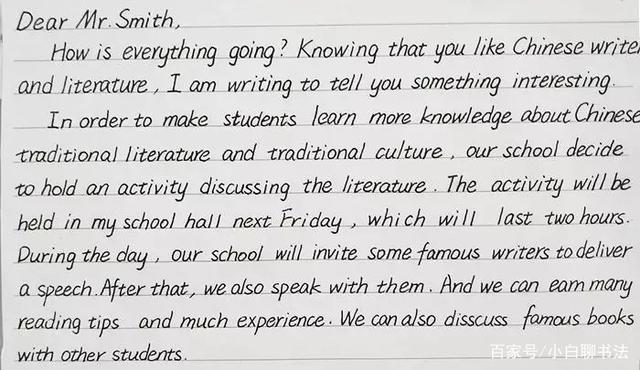 Dear Mr. Smith,
How is everything going? Knowing that you like Chinese writer
and literature, I am writing to tell you something interesting.
In order to make students learn more knowledge about Chinese
traditional literature and traditional culture, our school decide
to hold an activity discussing the literature. The activity will be
held in my school hall next Friday, which will last two hours.
During the day, our school will invite some famous writers to deliver
a speech. After that, we also speak with them. And we can earn many
reading tips and much experience. We can also disscuss famous books
with other students.
百家号/小白聊书法